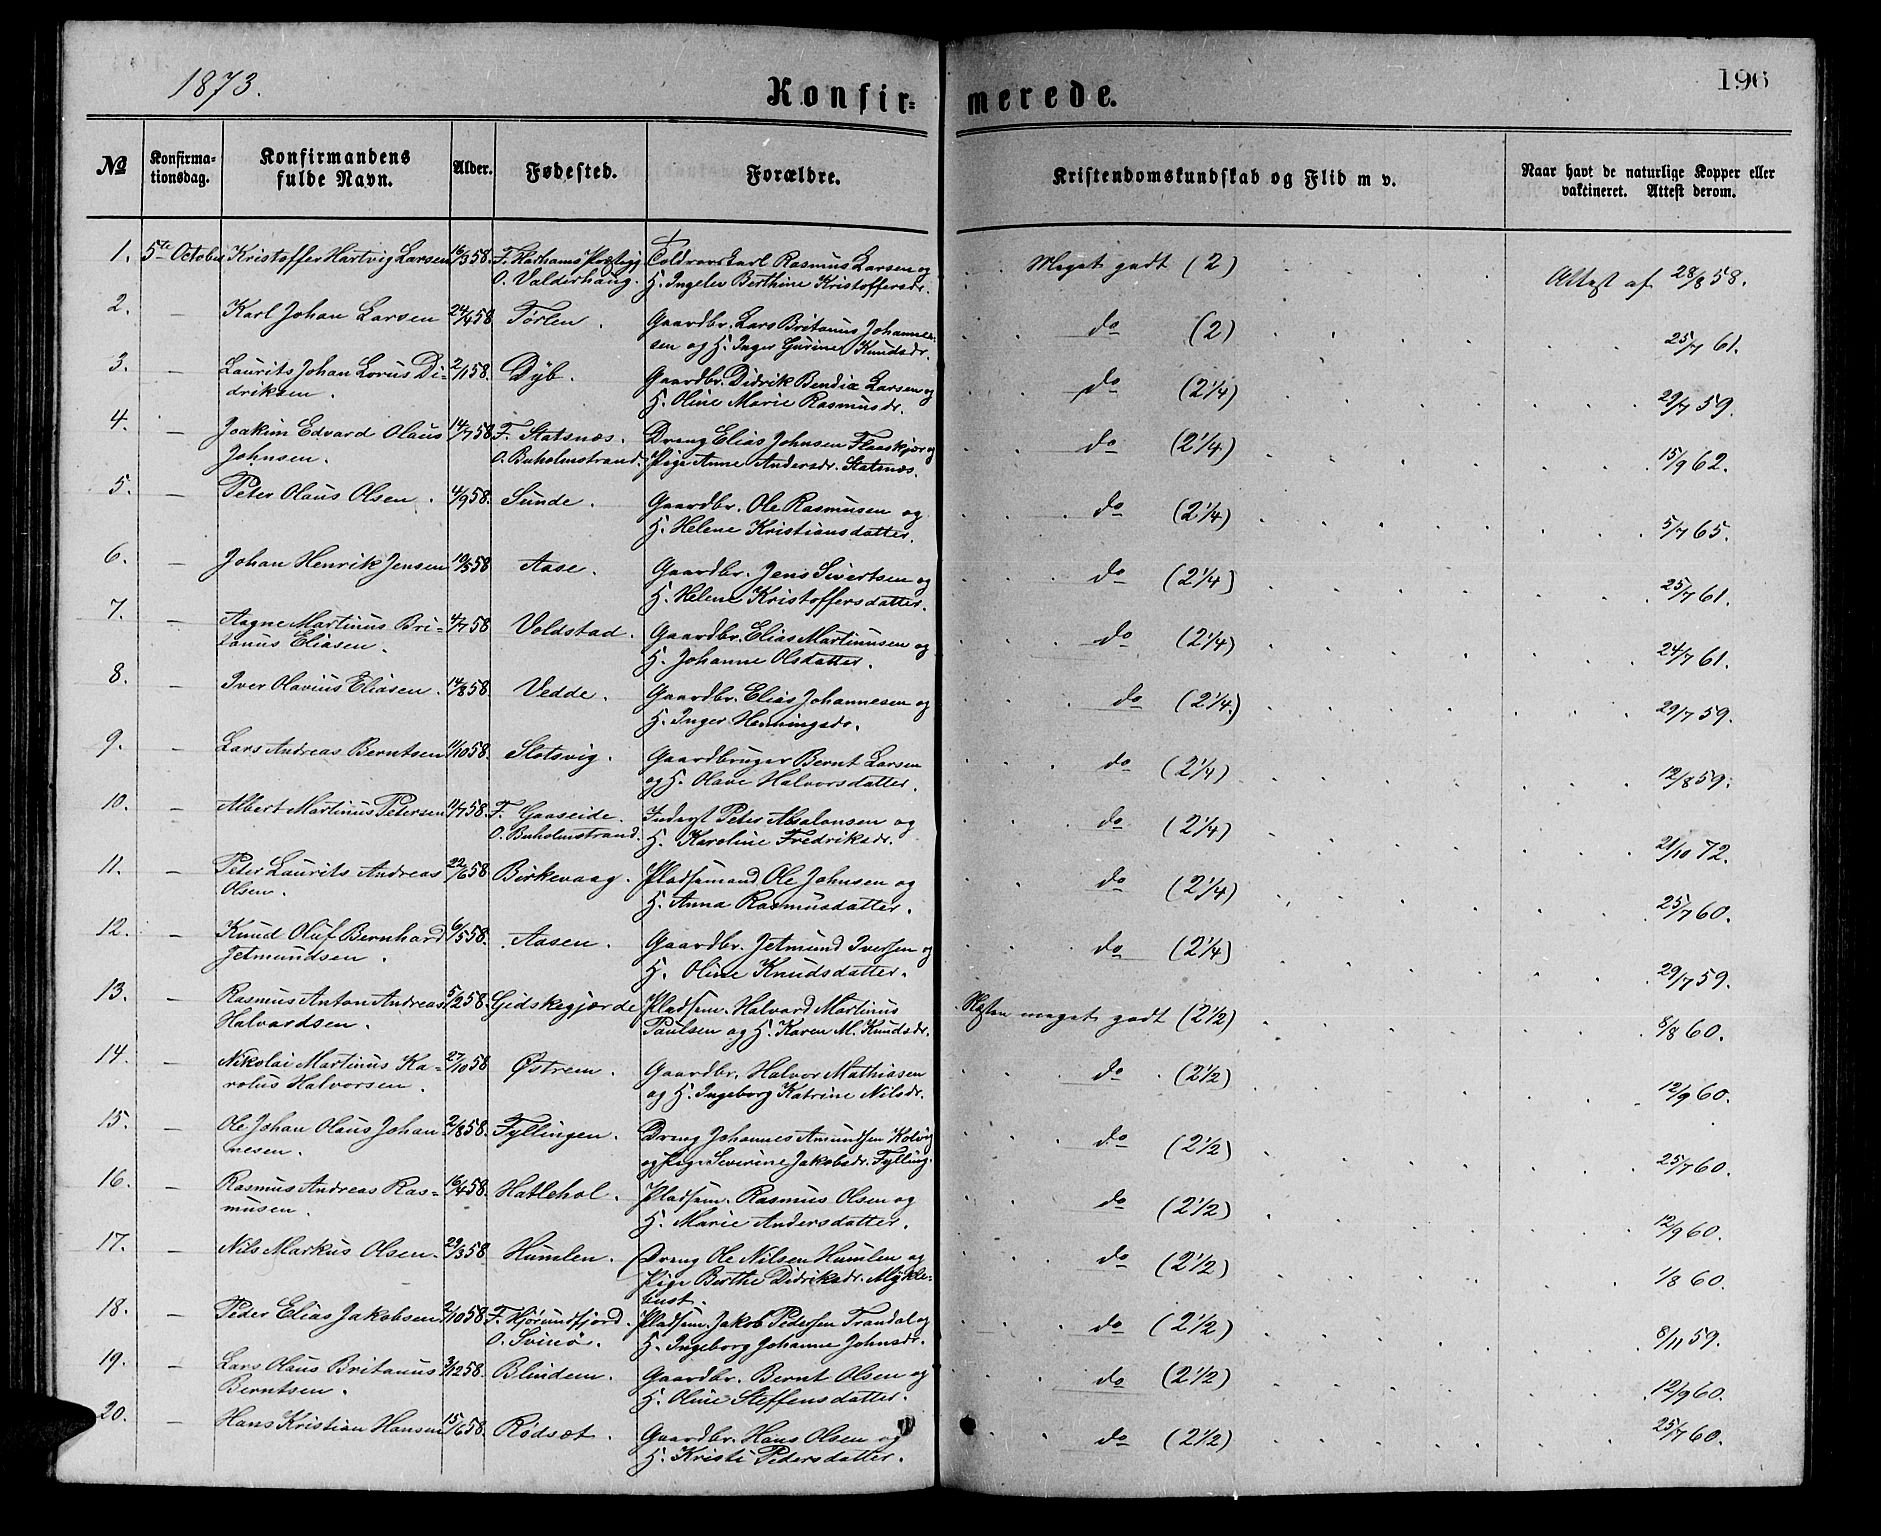 1873.
Konfir=
merede.
196
No
Konfirma-
tionsdag.
Konfirmandens
fulde Navn.
Alder.
Fødested.
Forældre.
Kristendomskundskab og Flid m v.
Naar havt de naturlige Kopper eller
vaktineret. Attest derom.
1. 5te October Kristoffer Hartvig Larsen 16/3 58. F. Harhams Præstegj. Toldroerskarl Rasmus Larsen og Meget godt (2) Attest af 28/8 58.
O. Valderhaug. H. Ingelev Berthine Kristoffersdr.
2. — Karl Johan Larsen 24/4 58 Tørlen. Gaardbr. Lars Britanus Johannes- do (2) 25/7 61.
sen og H. Inger Gurine Knudsdr.
3. — Laurits Johan Lovus Di- 2/1 58. Dyb. Gaardbr. Didrik Bendix Larsen og do (2 1/4) 29/7 59.
driksen. H. Oline Marie Rasmusdr.
4. — Joakim Edvard Olaus 14/7 58 F. Statsnæs. Dreng Elias Johnsen Flaaskjær og do (2 1/4) 15/9 62.
Johnsen. O. Buholmstrand. Pige Anne Andersdr. Statsnæs.
5. — Peter Olaus Olsen. 4/9 58. Sunde. Gaardbr. Ole Rasmusen og do (2 1/4) 5/7 65.
H. Helene Kristiansdatter.
6. — Johan Henrik Jensen 19/5 58 Aase. Gaardbr. Jens Sivertsen og do (2 1/4) 25/7 61.
H. Helene Kristoffersdatter.
7. — Aagne Martinus Bri- 4/7 58 Voldstad. Gaardbr. Elias Martinusen og do (2 1/4) 24/7 61.
tanus Eliasen. H. Johanne Olsdatter.
8. — Iver Olavius Eliasen. 14/8 58. Vedde. Gaardbr. Elias Johannesen og do (2 1/4.) 29/7 59.
H. Inger Henningsdr.
9. — Lars Andreas Berntsen 11/10 58. Slotsvig. Gaardbruger Bernt Larsen do (2 1/4) 12/8 59.
og H. Olave Halvorsdatter.
10. — Albert Martinus Petersen 11/7 58. F. Gaaseide. Inderst Peter Absalonsen og do (2 1/4) 21/10 72.
O. Buholmstrand. H. Karoline Fredriksdr.
11. — Peter Laurits Andreas 22/6 58 Birkevaag. Pladsemand Ole Johnsen og do (2 1/4) 25/7 60.
Olsen. H. Anna Rasmusdatter.
12. — Knud Oluf Bernhard 6/5 58. Aasen. Gaardbr. Jetmund Iversen og do (2 1/4) 29/7 59.
Jetmundsen. H. Oline Knudsdatter.
13. — Rasmus Anton Andreas 5/2 58. Gidskegjærde Pladsem. Halvard Martinus Næsten meget godt (2 1/2) 8/8 60.
Halvardsen. Paulsen og H. Karen M. Knudsdr.
14. — Nikolai Martinus Ka- 27/10 58 Østrem. Gaardbr. Halvor Mathiasen do (2 1/2) 12/9 60.
rolus Halvorsen. og H. Ingeborg Katrine Nilsdr.
15. — Ole Johan Olaus Johan- 2/8 58. Fyllingen. Dreng Johannes Amundsen Kolvig do (2 1/2) 25/7 60.
nesen. og Pige Severine Jakobsdr. Fylling.
16. — Rasmus Andreas Ras- 16/4 58. Hatlehol. Pladsem. Rasmus Olsen og do (2 1/2) 12/9 60.
musen. H. Marie Andersdatter.
17. — Nils Markus Olsen. 29/3 58 Humlen. Dreng Ole Nilsen Humlen og do (2 1/2) 1/8 60.
Pige Berthe Didriksdr. Mykle-
bust.
18. — Peder Elias Jakobsen 2/10 58 F. Hjørundfjord. Pladsem. Jakob Pedersen Trandal og do (2 1/2) 8/11 59.
O. Svinø. H. Ingeborg Johanne Johnsdr.
19. — Lars Olaus Britanus 3/12 58. Blindem. Gaardbr. Bernt Olsen og do (2 1/2) 12/9 60.
Berntsen. H. Oline Steffensdatter.
20. — Hans Kristian Hansen 15/6 58. Rødsæt. Gaardbr. Hans Olsen og do (2 1/2) 25/7 60.
H. Kristi Pedersdatter.